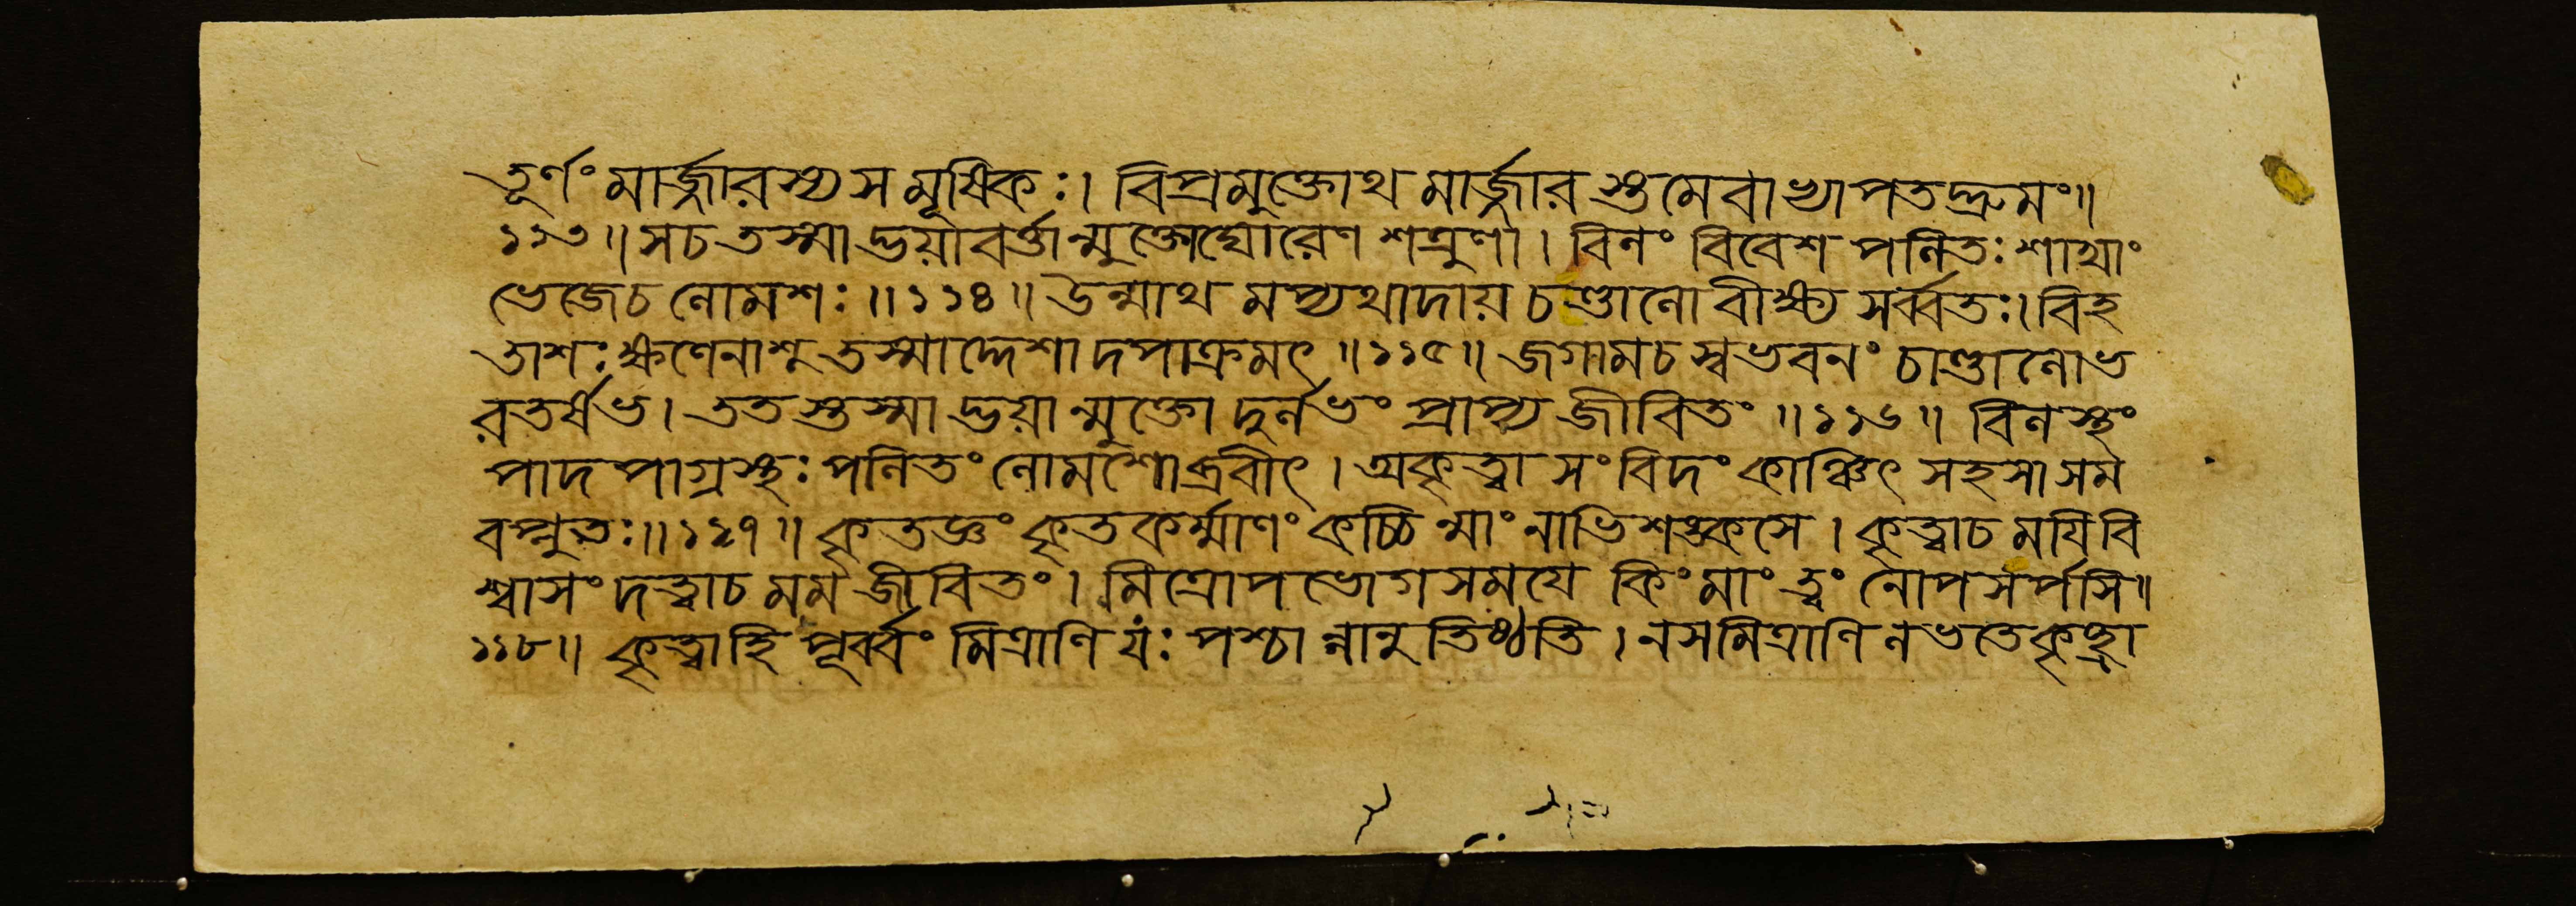 তূর্ণং মার্জ্জারস্য স মূষিকঃ। বিপ্রমুক্তোথ মার্জ্জারস্তমেবাভ্যাপতদ্দ্রুমং॥
১১৩॥ স চ তস্মাদ্ভয়াবর্ত্তান্মুক্তোঘোরেণ শত্রুণা। বিলং বিবেশ পলিতঃ শাখাং
ভেজে চ লোমশঃ॥১১৪॥ উন্মাথমপ্যথাদায় চণ্ডালো বীক্ষ্য সর্ব্বতঃ। বিহ
তাশঃ ক্ষণেনাশু তস্মাদ্দেশাদপাক্রমৎ॥১১৫॥ জগাম চ স্বভবনং চাণ্ডালো ভ
রতর্ষভ। ততস্তস্মাদ্ভয়ান্মুক্তো দুর্লভং প্রাপ্য জীবিতং॥১১৬॥ বিলস্থং
পাদপাগ্রস্থঃ পলিতং লোমশোব্রবীৎ। অকৃত্বা সংবিদং কাঞ্চিৎ সহসা সম
বপ্লুতঃ॥১১৭॥ কৃতজ্ঞং কৃতকর্ম্মাণং কচ্চিন্মাং নাভিশঙ্কসে। কৃত্বা চ ময়ি বি
শ্বাসং দত্ত্বা চ মম জীবিতং। মিত্রোপভোগসময়ে কিং মাং ত্বং নোপসর্পসি॥
১১৮॥ কৃত্বা হি পূর্ব্বং মিত্রাণি যঃ পশ্চান্নানুতিষ্ঠতি। ন স মিত্রাণি লভতে কৃচ্ছ্রা